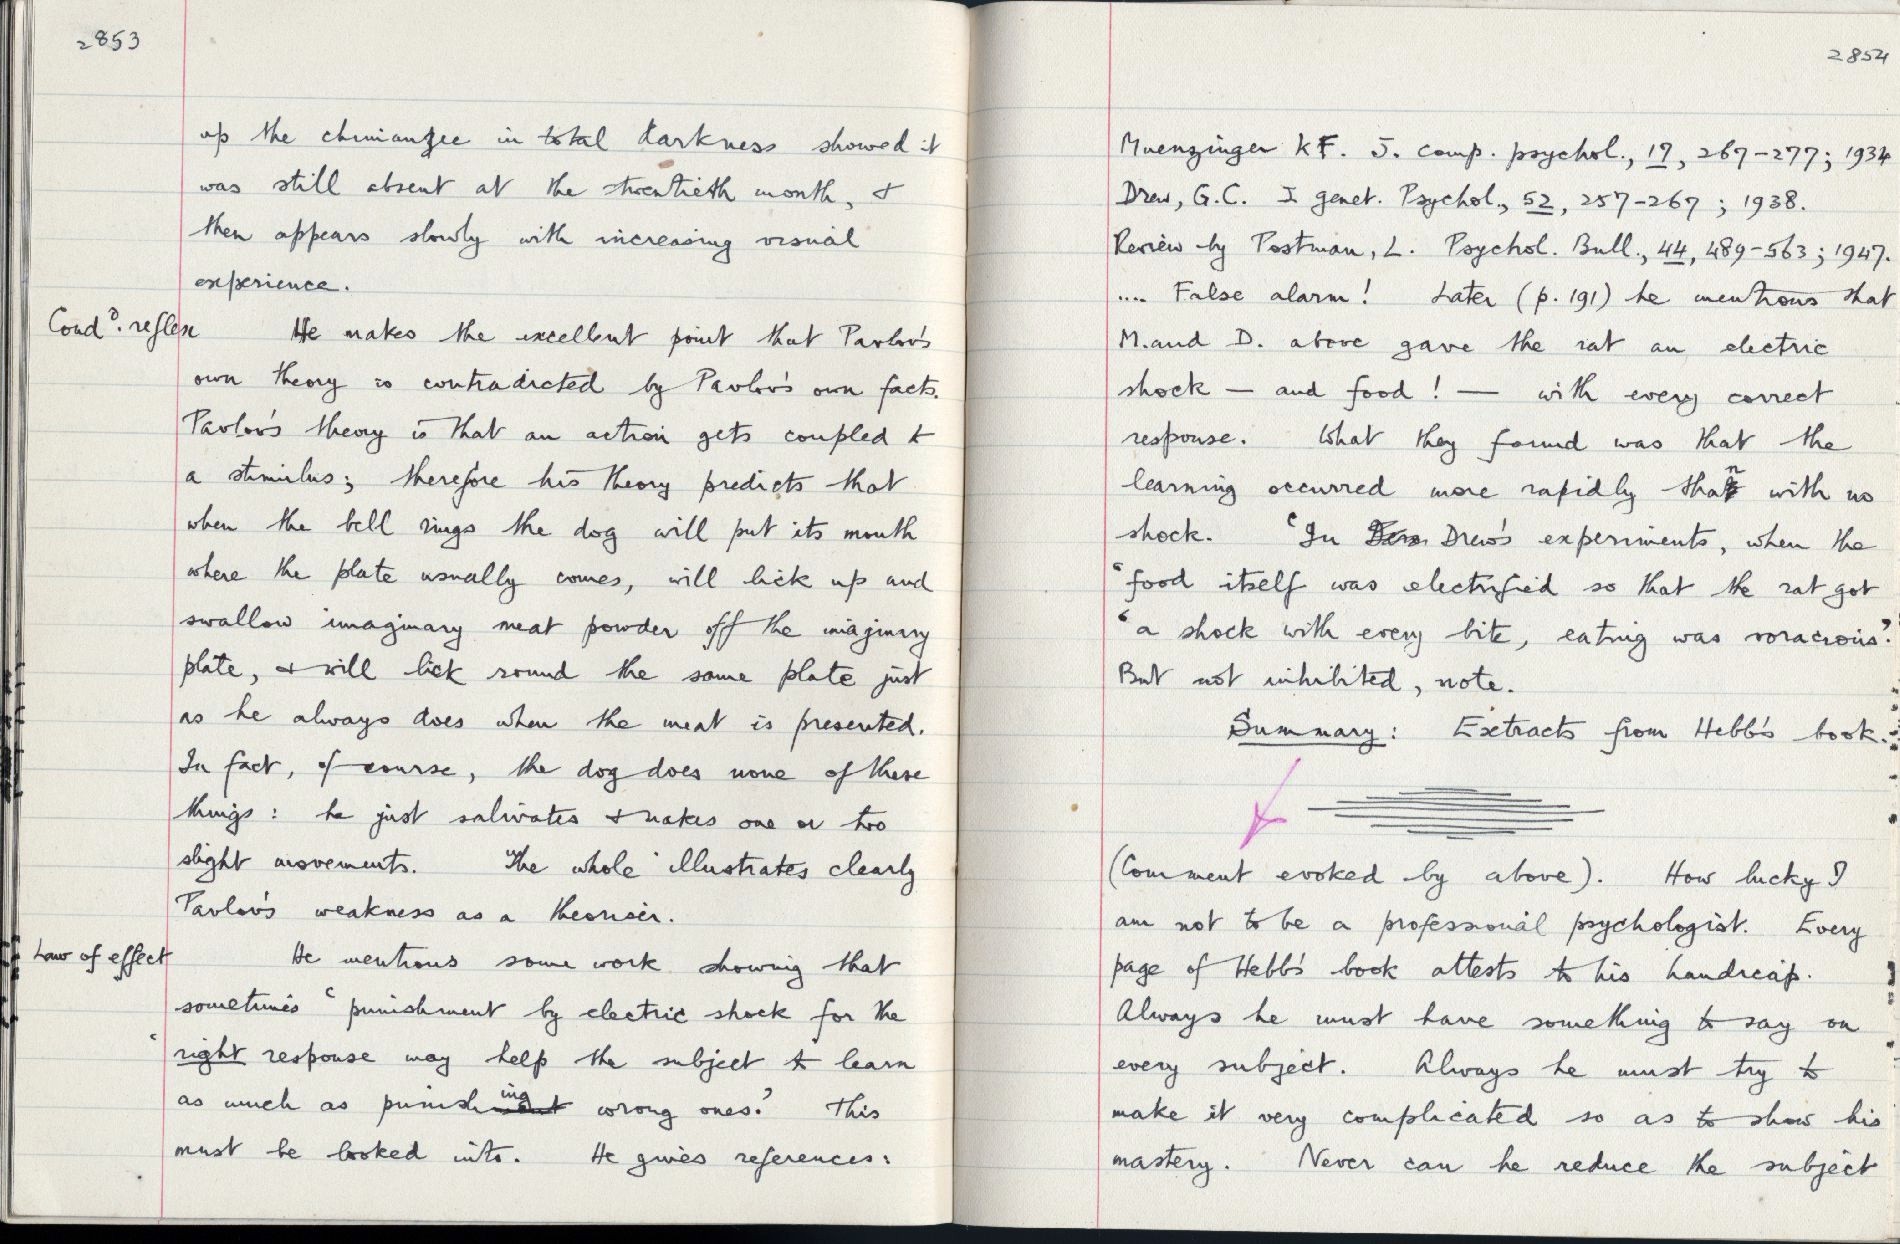 2853
up the chimianzee in total darkness showed it
was still absent at the twentieth month, &
then appears slowly with increasing visual
experience.
Condd. reflex
He makes the excellent point that Pavlov's
own theory is contradicted by Pavlov's own facts.
Pavlov's theory is that an action gets coupled to
a stimulus; therefore his theory predicts that
when the bell rings the dog will put its mouth
where the plate usually comes, will lick up and
swallow imaginary meat powder off the imaginary
plate, & will lick round the same plate just
as he always does when the meat is presented.
In fact, of course, the dog does none of these
things: he just salivates & makes one or two
slight movements. The whole illustrates clearly
Pavlov's weakness as a theoriser.
Law of effect
He mentions some work showing that
sometimes ‘punishment by electric shock for the
‘right response may help the subject to learn
as much as punishing wrong ones.’ This
must be looked into. He gives references:
2854
Muenzinger KF. J. comp. psychol., 17, 267-277; 1934
Drew, G.C. J genet. Psychol., 52, 257-267; 1938.
Review by Postman, L. Psychol. Bull., 44, 489-563; 1947.
.... False alarm! Later (p. 191) he mentions that
M. and D. above gave the rat an electric
shock — and food! — with every correct
response. What they found was that the
learning occurred more rapidly than with no
shock. ‘In Drew's experiments, when the
‘food itself was electrified so that the rat got
‘a shock with every bite, eating was voracious’.
But not inhibited, note.
Summary: Extracts from Hebb's book.
(Comment evoked by above). How lucky I
am not to be a professional psychologist. Every
page of Hebb's book attests to his handicap.
Always he must have something to say on
every subject. Always he must try to
make it very complicated so as to show his
mastery. Never can he reduce the subject